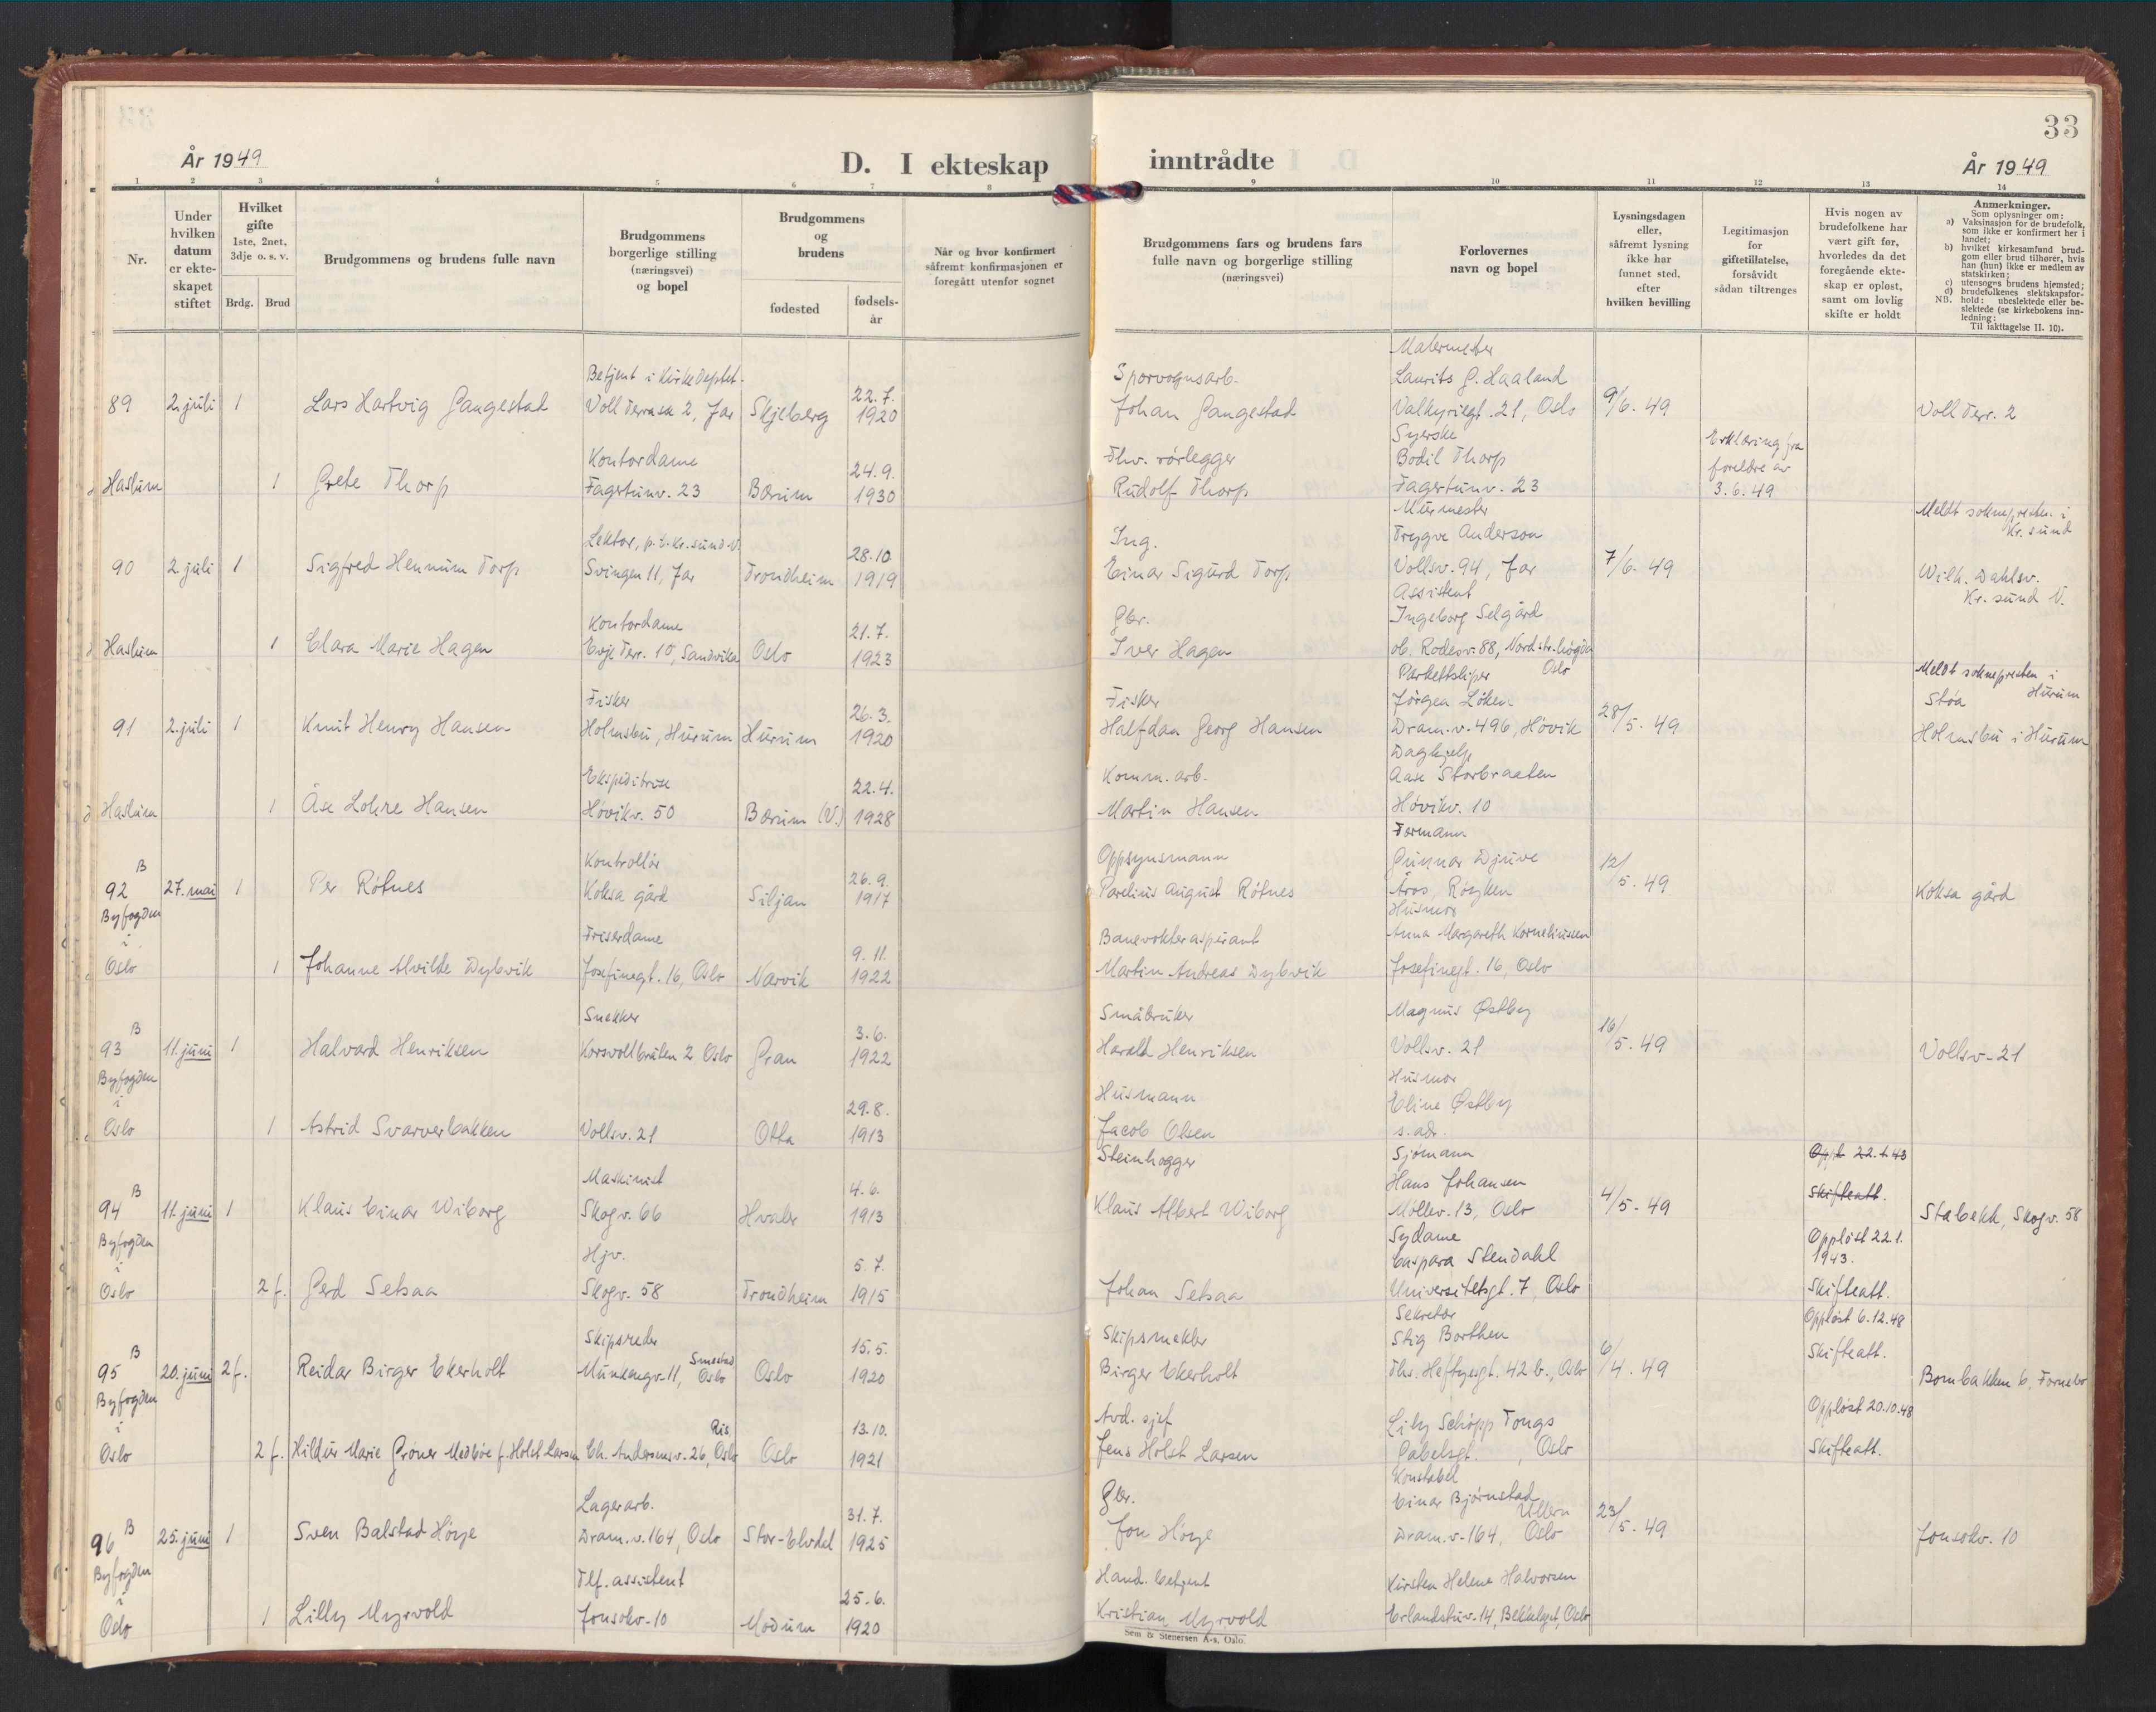 33
År 1949
D. I ekteskap inntrådte
År 1949
1 2 3 4 5 6 7 8 9 10 11 12 13 14
Nr.
Under hvilken datum er ekteskapet stiftet
Hvilket gifte 1ste, 2net, 3dje o. s. v.
Brdg. Brud
Brudgommens og brudens fulle navn
Brudgommens borgerlige stilling (næringsvei) og bopel
Brudgommens og brudens
fødested
fødsels-år
Når og hvor konfirmert såfremt konfirmasjonen er foregått utenfor sognet
Brudgommens fars og brudens fars fulle navn og borgerlige stilling (næringsvei)
Forlovernes navn og bopel
Lysningsdagen eller, såfremt lysning ikke har funnet sted, efter hvilken bevilling
Legitimasjon for giftetillatelse, forsåvidt sådan tiltrenges
Hvis nogen av brudefolkene har vært gift før, hvorledes da det foregående ekteskap er opløst, samt om lovlig skifte er holdt
Anmerkninger.
Som oplysninger om:
a) Vaksinasjon for de brudefolk, som ikke er konfirmert her i landet;
b) hvilket kirkesamfund brudgom eller brud tilhører, hvis han (hun) ikke er medlem av statskirken;
c) utensogns brudens hjemsted;
d) brudefolkenes slektskapsforhold: ubeslektede eller beslektede (se kirkebokens innledning:
NB. Til iakttagelse II. 10).
89 2. juli 1 Lars Hartvig Gangestad
Betjent i Kirkedeptet.
Voll Terrasse 2, Jar Skjeberg 22.7. 1920
Sporvognsarb.
Johan Gangestad
Malermester
Laurits G. Haaland
Valkyriegt. 21, Oslo 9/6. 49 Voll Terr. 2
Haslum 1 Grete Thorp
Kontordame
Fagertunv. 23 Bærum 24.9. 1930
Fhv. rørlegger
Rudolf Thorp
Syerske
Bodil Thorp
Fagertunv. 23
Erklæring fra
foreldre av
3.6.49
90 2. juli 1 Sigfred Hennum Torp
Lektor, p.t. Kr.sund N.
Svingen 11, Jar Trondheim 28.10 1919
Ing.
Einar Sigurd Torp
Murmester
Trygve Anderson
Vollsv. 94, Jar 7/6. 49
Meldt soknepresten i
Kr. sund
Wilh. Dahlsv.
Kr. sund N.
Haslum 1 Clara Marie Hagen
Kontordame
Evje Terr. 10, Sandvika Oslo 21.7. 1923
Gbr.
Iver Hagen
Assistent
Ingeborg Selgård
ob. Rodesv. 88, Nordstr.høgda
Oslo
91 2. juli 1 Knut Henry Hansen
Fisker
Holmsbu, Hurum Hurum 26.3. 1920
Fisker
Halfdan Georg Hansen
Parkettsliper
Jørgen Løken
Dram.v. 496, Høvik 28/5. 49
Meldt soknepresten i
Hurum
Støa
Holmsbu i Hurum
Haslum 1 Åse Lohre Hansen
Ekspeditrise
Høvikv. 50 Bærum (V.) 22.4. 1928
Komm. arb.
Martin Hansen
Daghjelp
Aase Storbraaten
Høvikv. 10
B
92 27. mai 1 Per Røtnes
Kontrollør
Koksa gård Siljan 26.9. 1917
Oppsynsmann
Parelius August Røtnes
Formann
Gunnar Djuve
Åros, Røyken 12/5. 49 Koksa gård
Byfogden
i
Oslo 1 Johanne Alvilde Dybvik
Friserdame
Josefinegt. 16, Oslo Narvik 9.11. 1922
Banevokteraspirant
Martin Andreas Dybvik
Husmor
Anna Margareth Korneliussen
Josefinegt. 16, Oslo
B
93 11. juni 1 Halvard Henriksen
Snekker
Korsvollbråten 2 Oslo Gran 3.6. 1922
Småbruker
Harald Henriksen
Magnus Østby
Vollsv. 21 16/5. 49 Vollsv. 21
Byfogden
i
Oslo 1 Astrid Svarverbakken
Vollsv. 21 Otta 29.8. 1913
Husmann
Jacob Olsen
Husmor
Eline Østby
s. adr.
B
94 11. juni 1 Klaus Einar Wiborg
Maskinist
Skogv. 66 Hvaler 4.6. 1913
Steinhogger
Klaus Albert Wiborg
Sjømann
Hans Johansen
Møllev. 13, Oslo 4/5. 49
Oppl. 22.1.43
Skifteatt.
Stabekk, Skogv. 58
Byfogden
i
Oslo 2 f. Gerd Setsaa
Hjv.
Skogv. 58 Trondheim 5.7. 1915
Johan Setsaa
Sydame
Caspara Stendahl
Universitetsgt. 7, Oslo
Oppløst 22.1.
1943.
Skifteatt.
B
95 20. juni 2 f. Reidar Birger Ekerholt
Skipsreder
Munkengv. 11, Smestad Oslo Oslo 15.5. 1920
Skipsmekler
Birger Ekerholt
Sekretær
Stig Borthen
Ths. Heftyesgt. 42 b., Oslo 6/4. 49
Oppløst 6.12.48
Skifteatt.
Bombakken 6, Fornebo
Byfogden
i
Oslo 2 f. Hildur Marie Grøner Medbøe f. Holst Larsen
Ch. Andersensv. 26, Ris, Oslo Oslo 13.10. 1921
Avd. sjef
Jens Holst Larsen
Lily Schøpp Tongs
Gabelsgt. , Oslo
Oppløst 20.10.48
Skifteatt.
B
96 25. juni 1 Sven Balstad Høye
Lagerarb.
Dram.v. 164, Oslo Stor-Elvdal 31.7. 1925
Gbr.
Jon Høye
Konstabel
Einar Bjørnstad
Ullern
Dram.v. 164, Oslo 23/5. 49 Jonsokv. 10
Byfogden
i
Oslo 1 Lilly Myrvold
Tlf. assistent
Jonsokv. 10 Modum 25.6. 1920
Hand. betjent
Kristian Myrvold
Kirsten Helene Halvorsen
Erlandstuv. 14, Bekkelaget, Oslo
Sem & Stenersen A-s, Oslo.